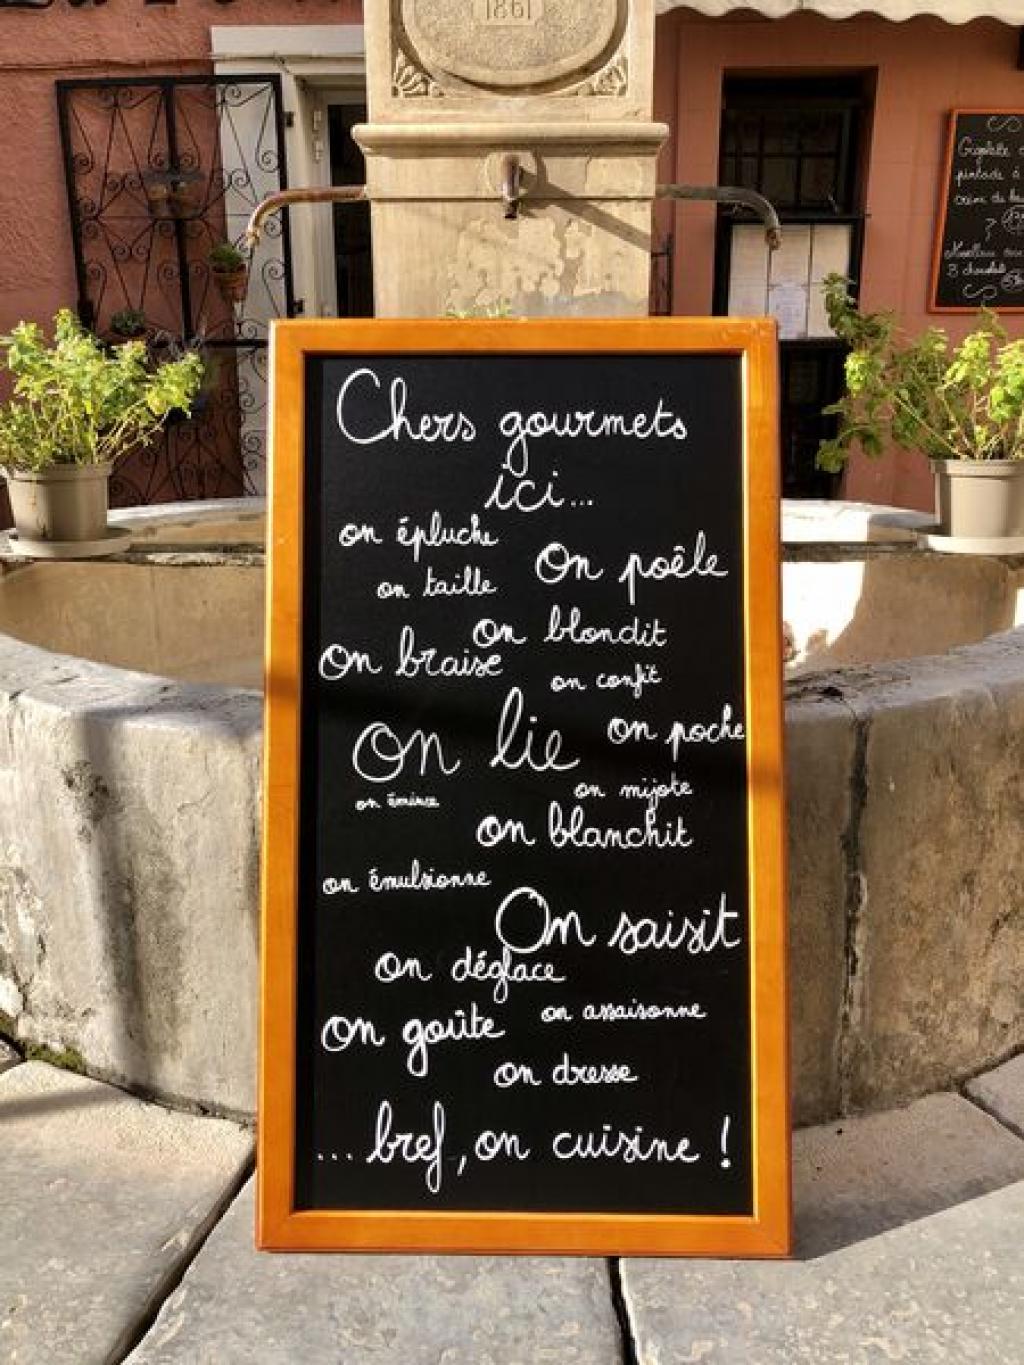 1861
Chers gourmets
ici...
on épluche
On poêle
on taille
On blondit
On braise
on confit
On lie
on poche
on mijote
on émince
on blanchit
on émulsionne
On saisit
On déglace
on assaisonne
On goûte
on dresse
... bref, on cuisine !
pintade à
3 chocolats